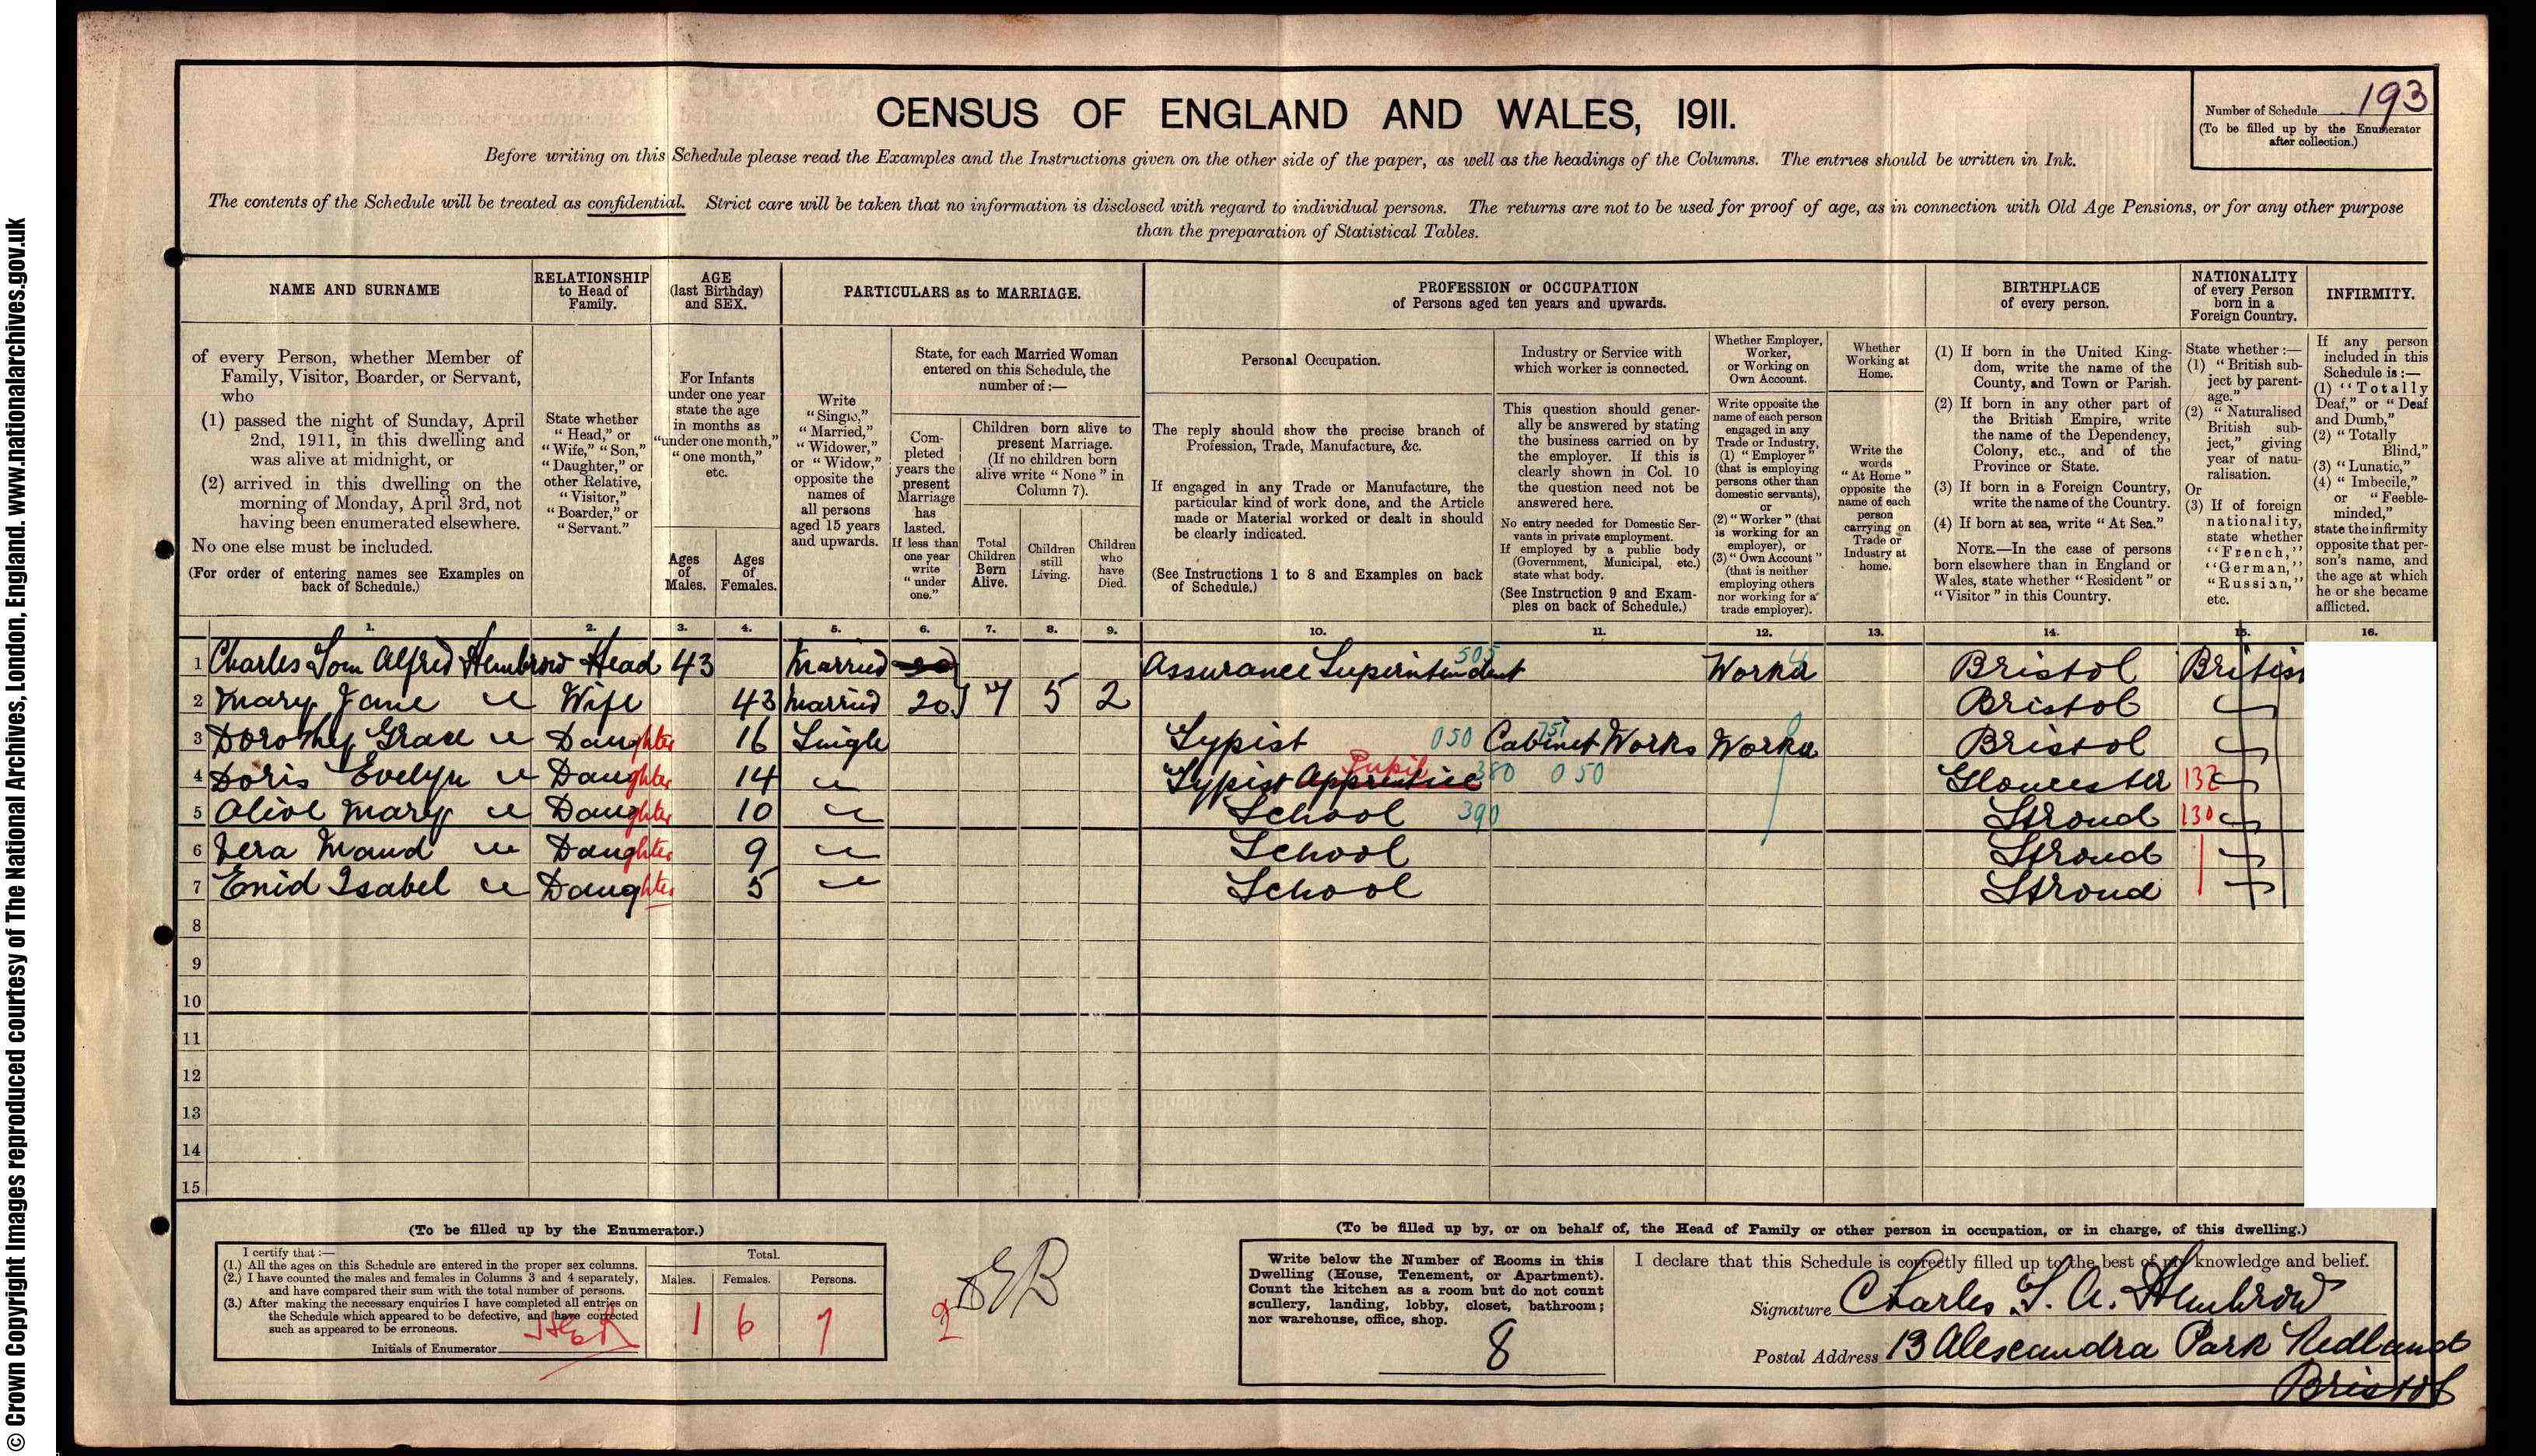 © Crown Copyright Images reproduced courtesy of The National Archives, London, England. www.nationalarchives.gov.uk
CENSUS OF ENGLAND AND WALES, 1911.
Number of Schedule 193
(To be filled up by the Enumerator
after collection.)
Before writing on this Schedule please read the Examples and the Instructions given on the other side of the paper, as well as the headings of the Columns. The entries should be written in Ink.
The contents of the Schedule will be treated as confidential. Strict care will be taken that no information is disclosed with regard to individual persons. The returns are not to be used for proof of age, as in connection with Old Age Pensions, or for any other purpose
than the preparation of Statistical Tables.
NAME AND SURNAME
of every Person, whether Member of
Family, Visitor, Boarder, or Servant,
who
(1) passed the night of Sunday, April
2nd, 1911, in this dwelling and
was alive at midnight, or
(2) arrived in this dwelling on the
morning of Monday, April 3rd, not
having been enumerated elsewhere.
No one else must be included.
(For order of entering names see Examples on
back of Schedule.)
RELATIONSHIP
to Head of
Family.
State whether
"Head," or
"Wife," "Son,"
"Daughter," or
other Relative,
"Visitor,"
"Boarder," or
"Servant."
AGE
(last Birthday)
and SEX.
For Infants
under one year
state the age
in months as
"under one month,"
"one month,"
etc.
Ages
of
Males.
Ages
of
Females.
PARTICULARS as to MARRIAGE.
Write
"Single,"
"Married,"
"Widower,"
or "Widow,"
opposite the
names of
all persons
aged 15 years
and upwards.
State, for each Married Woman
entered on this Schedule, the
number of :—
Com-
pleted
years the
present
Marriage
has
lasted.
If less than
one year
write
"under
one."
Children born alive to
present Marriage.
(If no children born
alive write "None" in
Column 7).
Total
Children
Born
Alive.
Children
still
Living.
Children
who
have
Died.
PROFESSION or OCCUPATION
of Persons aged ten years and upwards.
Personal Occupation.
The reply should show the precise branch of
Profession, Trade, Manufacture, &c.
If engaged in any Trade or Manufacture, the
particular kind of work done, and the Article
made or Material worked or dealt in should
be clearly indicated.
(See Instructions 1 to 8 and Examples on back
of Schedule.)
Industry or Service with
which worker is connected.
This question should gener-
ally be answered by stating
the business carried on by
the employer. If this is
clearly shown in Col. 10
the question need not be
answered here.
No entry needed for Domestic Ser-
vants in private employment.
If employed by a public body
(Government, Municipal, etc.)
state what body.
(See Instruction 9 and Exam-
ples on back of Schedule.)
Whether Employer,
Worker,
or Working on
Own Account.
Write opposite the
name of each person
engaged in any
Trade or Industry,
(1) "Employer"
(that is employing
persons other than
domestic servants),
or
(2) "Worker" (that
is working for an
employer), or
(3) "Own Account"
(that is neither
employing others
nor working for a
trade employer).
Whether
Working at
Home.
Write the
words
"At Home"
opposite the
name of each
person
carrying on
Trade or
Industry at
home.
BIRTHPLACE
of every person.
(1) If born in the United King-
dom, write the name of the
County, and Town or Parish.
(2) If born in any other part of
the British Empire, write
the name of the Dependency,
Colony, etc., and of the
Province or State.
(3) If born in a Foreign Country,
write the name of the Country.
(4) If born at sea, write "At Sea."
NOTE.—In the case of persons
born elsewhere than in England or
Wales, state whether "Resident" or
"Visitor" in this Country.
NATIONALITY
of every Person
born in a
Foreign Country.
State whether :—
(1) "British sub-
ject by parent-
age."
(2) "Naturalised
British sub-
ject," giving
year of natu-
ralisation.
Or
(3) If of foreign
nationality,
state whether
"French,"
"German,"
"Russian,"
etc.
INFIRMITY.
If any person
included in this
Schedule is :—
(1) "Totally
Deaf," or "Deaf
and Dumb,"
(2) "Totally
Blind,"
(3) "Lunatic,"
(4) "Imbecile,"
or "Feeble-
minded,"
state the infirmity
opposite that per-
son's name, and
the age at which
he or she became
afflicted.
1. 2. 3. 4. 5. 6. 7. 8. 9. 10. 11. 12. 13. 14. 15. 16.
1 Charles Tom Alfred Hembrow Head 43 Married Assurance Superintendent 505 Worker Bristol British
2 Mary Jane " Wife 43 Married 20 7 5 2 Bristol "
3 Dorothy Grace " Daughter 16 Single Typist 050 Cabinet Works Worker Bristol "
4 Doris Evelyn " Daughter 14 " Typist Apprentice Pupil 380 050 Gloucester 132 "
5 Olive Mary " Daughter 10 " School 390 Stroud 130 "
6 Vera Maud " Daughter 9 " School Stroud "
7 Enid Isabel " Daughter 5 " School Stroud "
8
9
10
11
12
13
14
15
(To be filled up by the Enumerator.)
I certify that :—
(1.) All the ages on this Schedule are entered in the proper sex columns.
(2.) I have counted the males and females in Columns 3 and 4 separately,
and have compared their sum with the total number of persons.
(3.) After making the necessary enquiries I have completed all entries on
the Schedule which appeared to be defective, and have corrected
such as appeared to be erroneous.
Initials of Enumerator
Total.
Males. Females. Persons.
1 6 7
(To be filled up by, or on behalf of, the Head of Family or other person in occupation, or in charge, of this dwelling.)
Write below the Number of Rooms in this
Dwelling (House, Tenement, or Apartment).
Count the kitchen as a room but do not count
scullery, landing, lobby, closet, bathroom;
nor warehouse, office, shop.
8
I declare that this Schedule is correctly filled up to the best of my knowledge and belief.
Signature Charles T. A. Hembrow
Postal Address 13 Alexandra Park Redland
Bristol